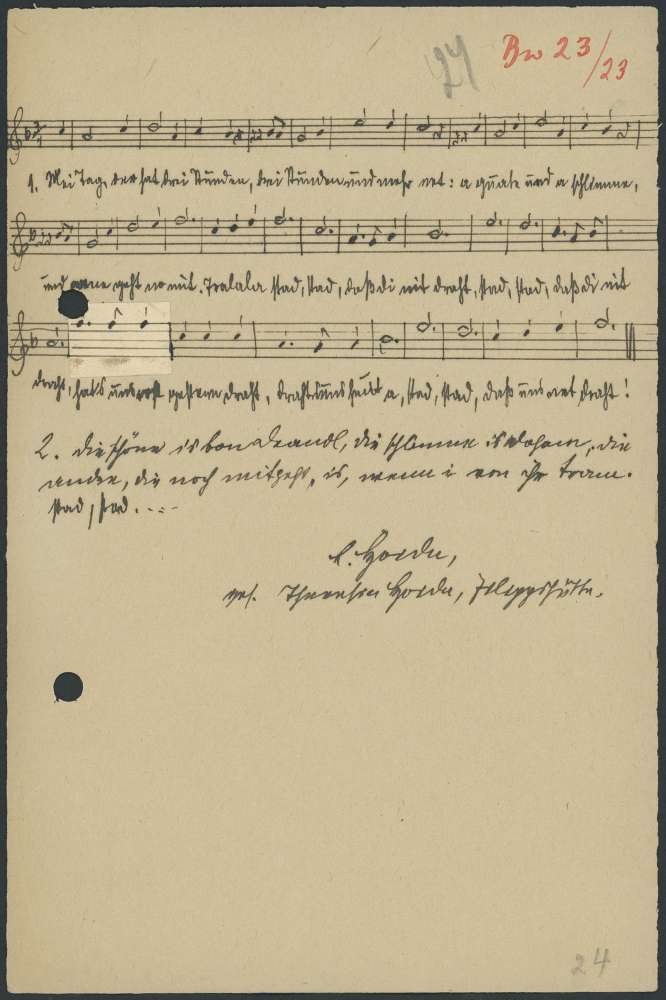 27 Bw 23/23
1. Mei Tag, der hat drei Stunden, drei Stunden und mehr net: a guate und a schlimme,
und oane geht no mit. Tralala stad, stad, daß di nit draht, stad, stad, daß di nit
draht, hat's uns erst gestern draht, drahts uns heut a, stad, stad, daß uns net draht!
2. die schöne is bon Deandl, die schlimme is dahoam, die
andre, die noch mitgeht, is, wenn i von ihr tram.
stad, stad. . . .
ges. Theresia
24